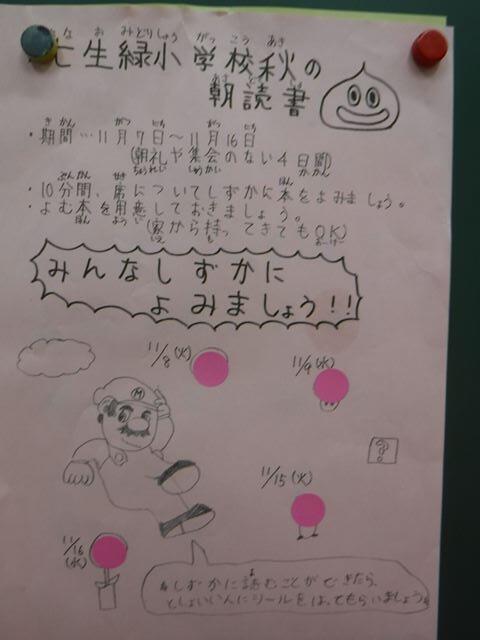 七生緑小学校秋の
朝読書
・期間…11月7日〜11月16日
(朝礼や集会のない4日間)
・10分間、席についてしずかに本をよみましょう。
・よむ本を用意しておきましょう。
(家から持ってきてもOK)
みんなしずかに
よみましょう!!
11/8(火)
11/9(水)
M
?
11/15(火)
11/16
(水)
しずかに読むことができたら、
としょいいんにシールをはってもらいましょう。